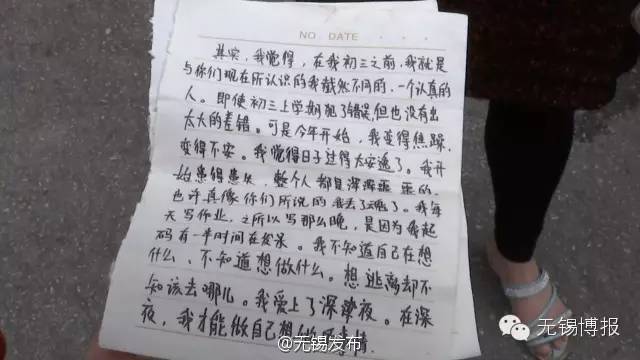 NO. DATE
其实，我觉得，在我初三之前，我就是
与你们现在所认识的我截然不同的，一个认真的
人。即使初三上学期犯了错误，但也没有出
太大的差错。可是今年开始，我变得焦躁，
变得不安。我觉得日子过得太安逸了。我开
始患得患失，整个人都是浑浑噩噩的。
也许真像你们所说的我丢了魂了。我每
天写作业，之所以写那么晚，是因为我起
码有一半时间在发呆。我不知道自己在想
什么，不知道想做什么。想逃离却不
知该去哪儿。我爱上了深夜。在深
夜，我才能做自己想做的事情
@无锡发布
无锡博报